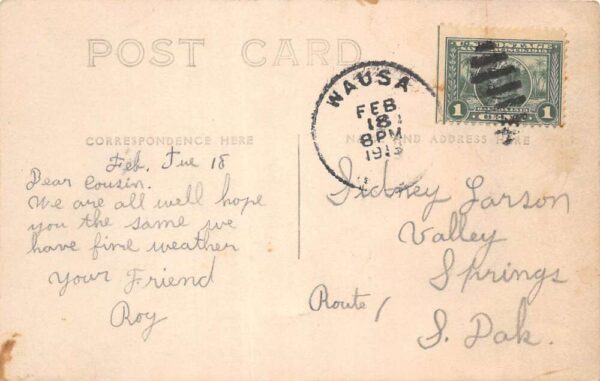 POST CARD
WAUSA
FEB
18
8PM
1913
U.S. POSTAGE
1 CENT 1
CORRESPONDENCE HERE
NAME AND ADDRESS HERE
Feb, Tue 18
Dear Cousin.
We are all well hope
you the same we
have fine weather
Your Friend
Roy
Sidney Larson
Valley
Springs
Route 1
S. Dak.